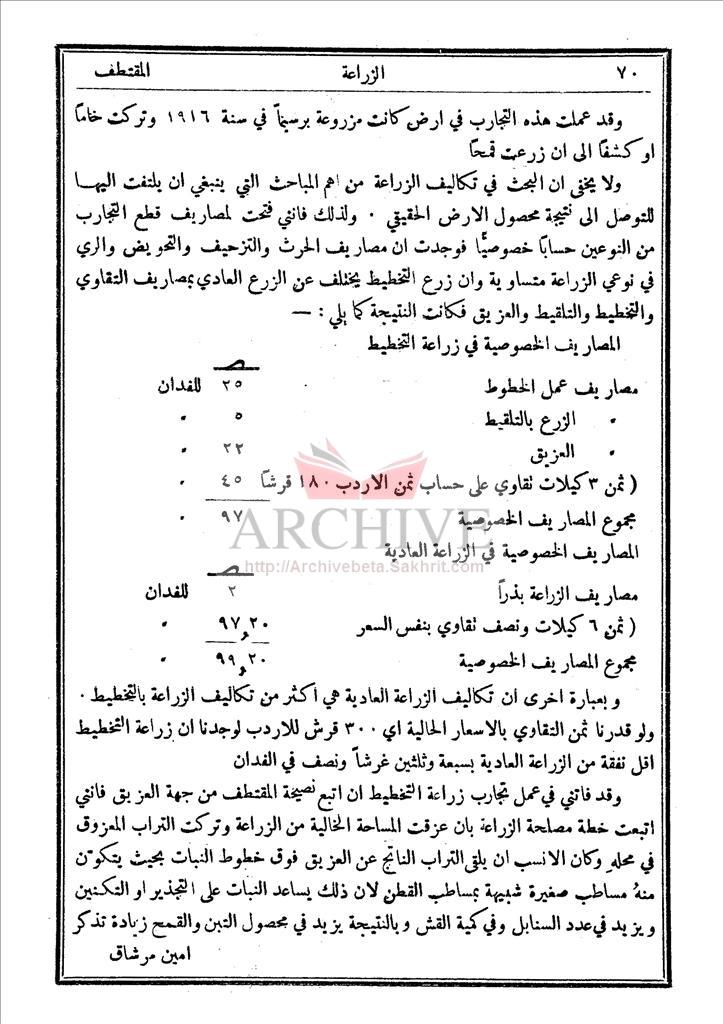 ٧٠ الزراعة المقتطف
وقد عملت هذه التجارب في ارض كانت مزروعة برسيماً في سنة ١٩١٦ وتركت خاماً
او كشفاً الى ان زرعت قمحاً
ولا يخفى ان البحث في تكاليف الزراعة من اهم المباحث التي ينبغي ان يلتفت اليها
للتوصل الى نتيجة محصول الارض الحقيقي . ولذلك فانني فتحت لمصاريف قطع التجارب
من النوعين حساباً خصوصيًّا فوجدت ان مصاريف الحرث والتزحيف والتحويض والري
في نوعي الزراعة متساوية وان زرع التخطيط يختلف عن الزرع العادي بمصاريف التقاوي
والتخطيط والتلقيط والعزيق فكانت النتيجة كما يلي : —
المصاريف الخصوصية في زراعة التخطيط
صـ
مصاريف عمل الخطوط ٢٥ للفدان
" الزرع بالتلقيط ٥ "
" العزيق ٢٢ "
( ثمن ٣ كيلات تقاوي على حساب ثمن الاردب ١٨٠ قرشاً ٤٥ "
مجموع المصاريف الخصوصية ٩٧ "
ARCHIVE
المصاريف الخصوصية في الزراعة العادية
http://Archivebeta.Sakhrit.com
صـ
مصاريف الزراعة بذراً ٢ للفدان
( ثمن ٦ كيلات ونصف تقاوي بنفس السعر ٩٧,٢٠ "
مجموع المصاريف الخصوصية ٩٩,٢٠ "
وبعبارة اخرى ان تكاليف الزراعة العادية هي اكثر من تكاليف الزراعة بالتخطيط .
ولو قدرنا ثمن التقاوي بالاسعار الحالية اي ٣٠٠ قرش للاردب لوجدنا ان زراعة التخطيط
اقل نفقة من الزراعة العادية بسبعة وثلثين غرشاً ونصف في الفدان
وقد فاتني في عمل تجارب زراعة التخطيط ان اتبع نصيحة المقتطف من جهة العزيق فانني
اتبعت خطة مصلحة الزراعة بان عزقت المساحة الخالية من الزراعة وتركت التراب المعزوق
في محله وكان الانسب ان يلقى التراب الناتج عن العزيق فوق خطوط النبات بحيث يتكوّن
منهُ مساطب صغيرة شبيهة بمساطب القطن لان ذلك يساعد النبات على التجذير او التكنين
ويزيد في عدد السنابل وفي كمية القش وبالنتيجة يزيد في محصول التبن والقمح زيادة تذكر
امين مرشاق